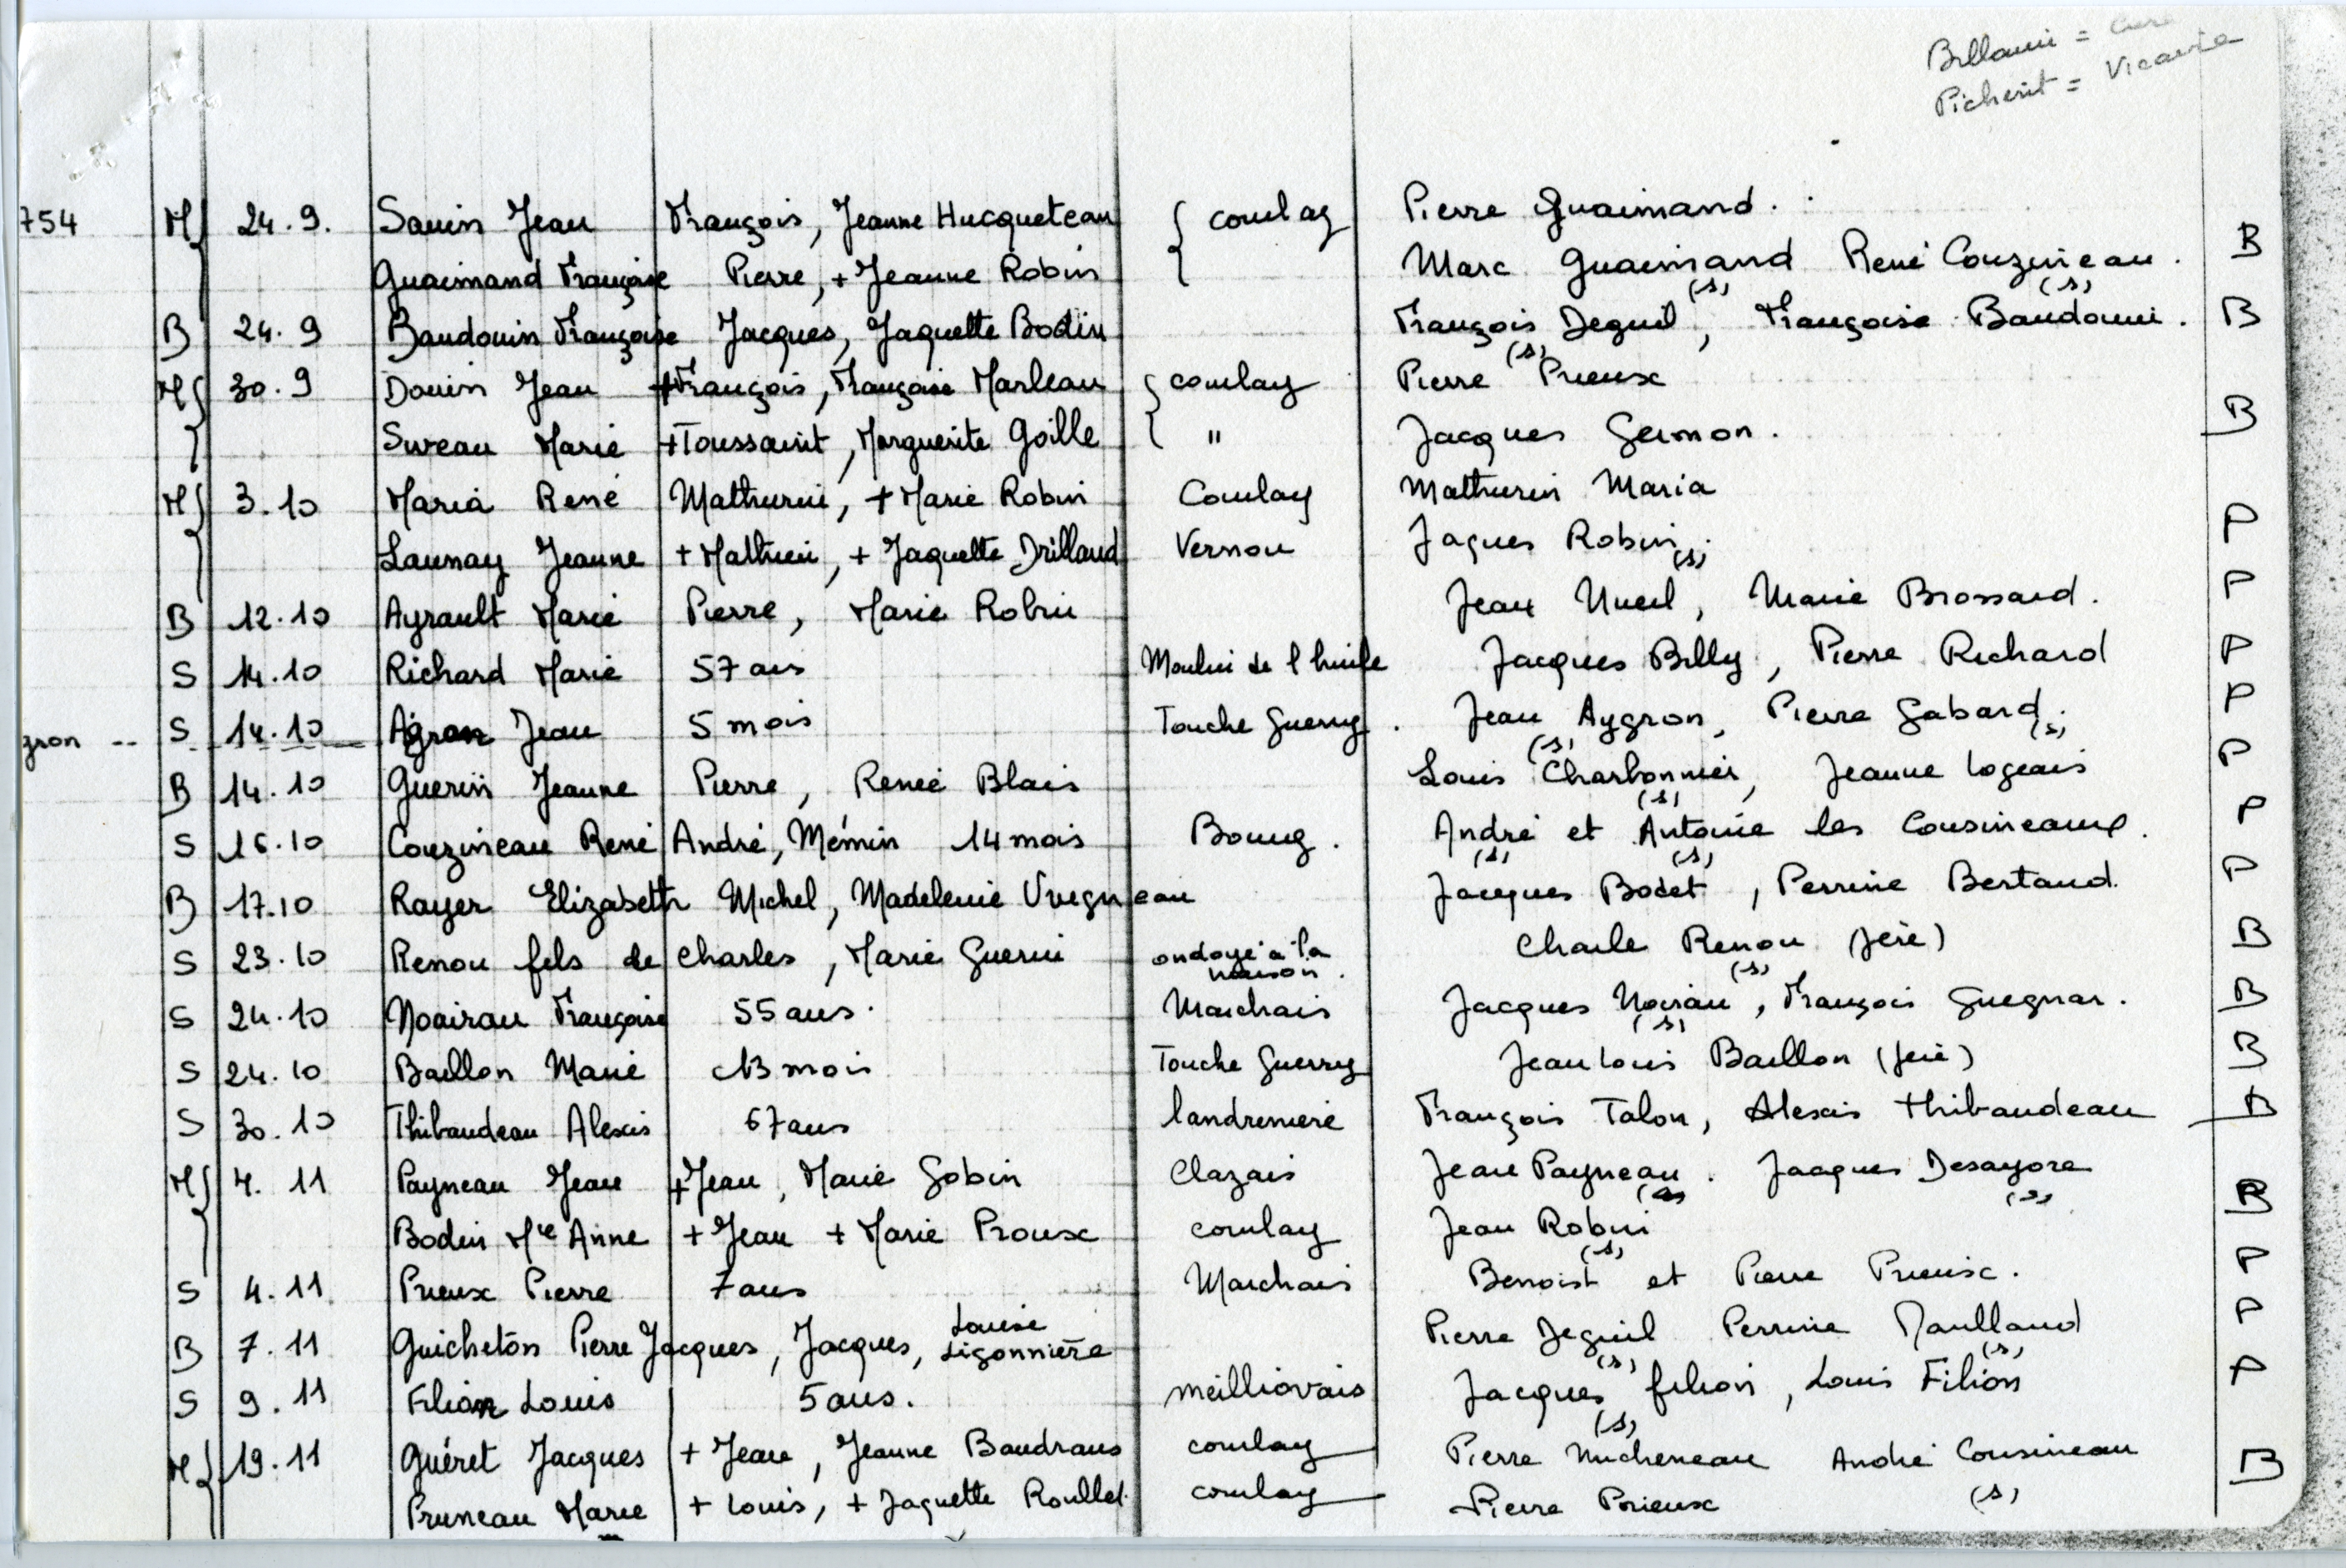 Billouin = Curé
Picherit = Vicaire
754 M 24.9. Sauin Jean François, Jeanne Hucqueteau coulay Pierre Guaimand.
Guaimand Françoise Pierre, + Jeanne Robin Marc Guaimand (s) René Couzineau (s). B
B 24.9 Baudouin Françoise Jacques, Jaquette Bodin François Deguil (s), Françoise Baudouin. B
M 30.9 Douin Jean + François, Françoise Marleau coulay Pierre Prieux
Sureau Marie + Toussaint, Marguerite Goille " Jacques Germon. B
M 3.10 Maria René Mathurin, + Marie Robin Coulay Mathurin Maria
Launay Jeanne + Mathieu, + Jaquette Drillaud Vernou Jaques Robin (s). P
B 12.10 Ayrault Marie Pierre, Marie Robin Jean Nueil, Marie Brossard. P
S 14.10 Richard Marie 57 ans Moulin de l'huile Jacques Billy, Pierre Richard P
gron -- S 14.10 Agron Jean 5 mois Touche Guerry. Jean Aygron (s), Pierre Gabard (s). P
B 14.10 Guerin Jeanne Pierre, Renée Blais Louis Charbonnier (s), Jeanne Logeais P
S 16.10 Couzineau René André, Mémin 14 mois Bourg. André (s) et Antoine (s) les Cousineaux. P
B 17.10 Rayer Elizabeth Michel, Madeleine Vregneau Jacques Bodet, Perrine Bertaud. P
S 23.10 Renou fils de Charles, Marie Guerin ondoyé à la maison. Charle Renou (s) (père) B
S 24.10 Noirau Françoise 55 ans. Marchais Jacques Noirau (s), François Guegnar. B
S 24.10 Baillon Marie 13 mois Touche Guerry Jean Louis Baillon (père) B
S 30.10 Thibaudeau Alexis 67 ans landremiere François Talon, Alexis thibaudeau B
M 4.11 Payneau Jean + Jean, Marie Gobin Clazais Jean Payneau (s). Jacques Desayore (s)
Bodin Mie Anne + Jean + Marie Proux coulay Jean Robin (s) B
S 4.11 Prieux Pierre 7 ans Marchais Benoist et Pierre Prieux. P
B 7.11 Guicheton Pierre Jacques, Jacques, Louise Ligonnière Pierre Deguil (s) Perrine Naulland (s) P
S 9.11 Filion Louis 5 ans. meilliovais Jacques filion (s), Louis Filion P
M 19.11 Guéret Jacques + Jean, Jeanne Baudrans coulay Pierre Micheneau André Cousineau (s) B
Pruneau Marie + Louis, + Jaquette Roullet. coulay Pierre Prieux